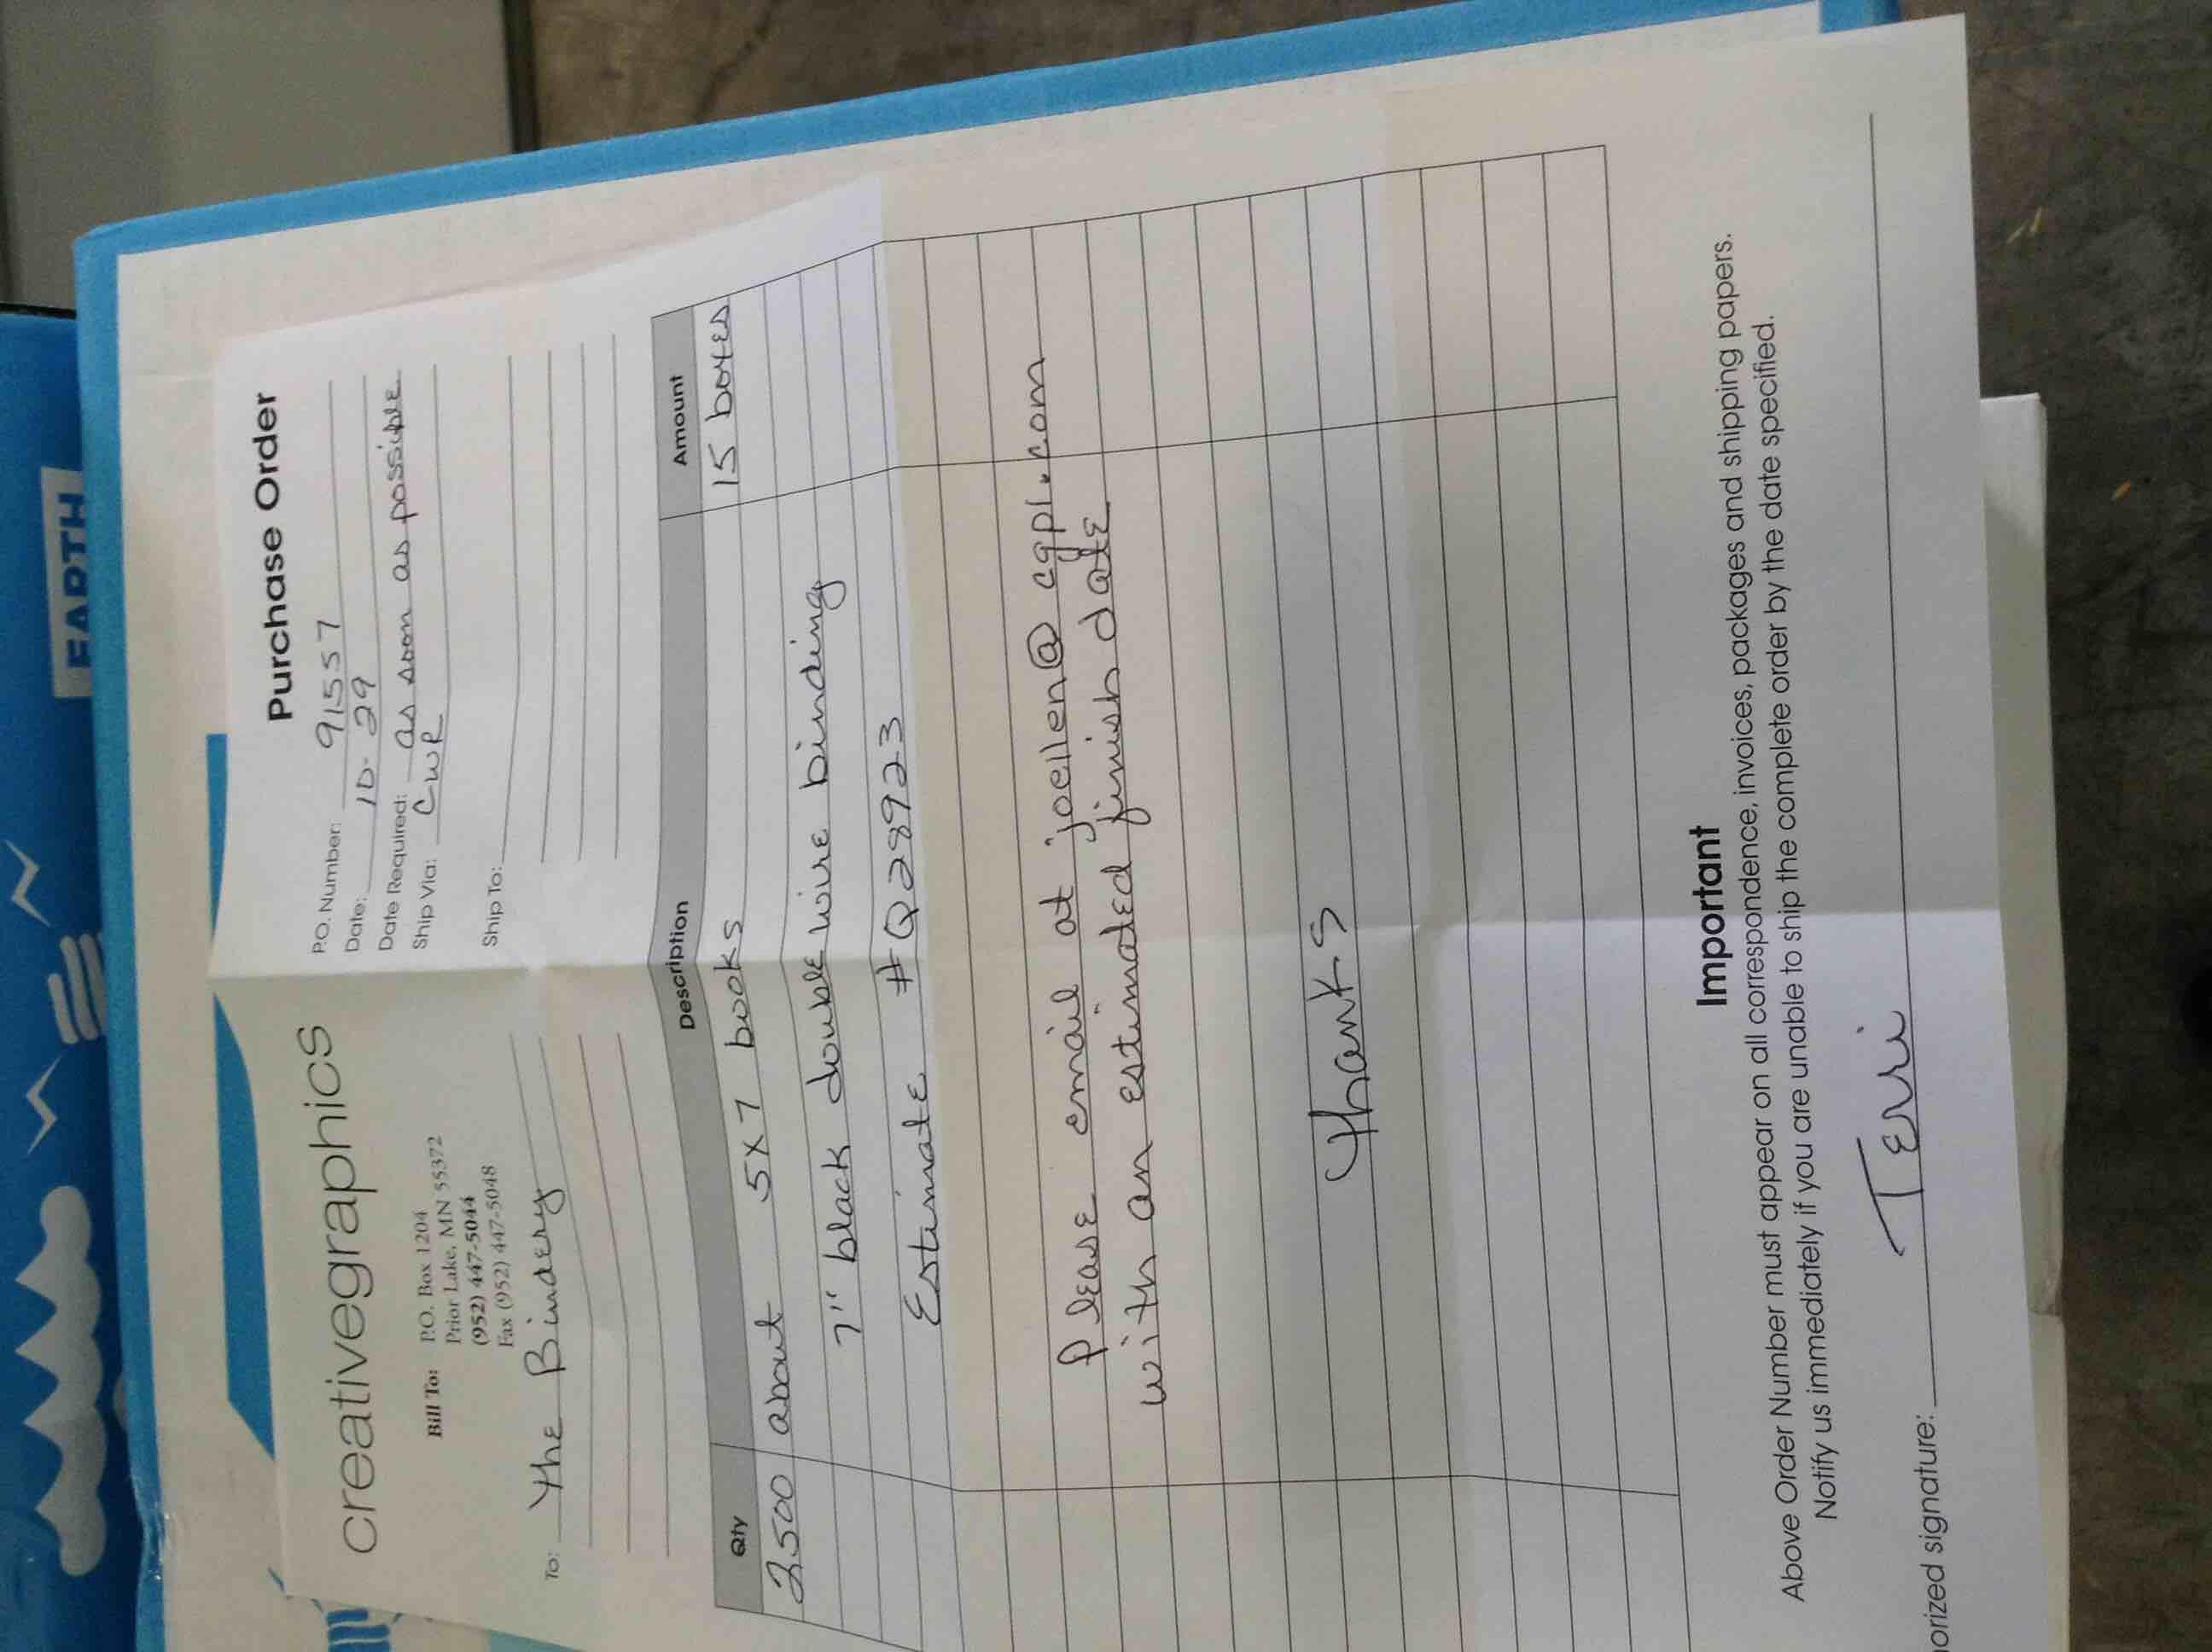 EARTH
creativegraphics
Purchase Order
Bill To: P.O. Box 1204
Prior Lake, MN 55372
(952) 447-5044
Fax (952) 447-5048
P.O. Number: 91557
Date: 10-29
Date Required: as soon as possible
Ship Via: CWR
To: The Bindery
Ship To:
Qty Description Amount
2500 about 5x7 books 15 boxes
7" black double wire binding
Estimate #Q28923
Please email at joellen@cgpl.com
with an estimated finish date
Thanks
Important
Above Order Number must appear on all correspondence, invoices, packages and shipping papers.
Notify us immediately if you are unable to ship the complete order by the date specified.
orized signature: Terri